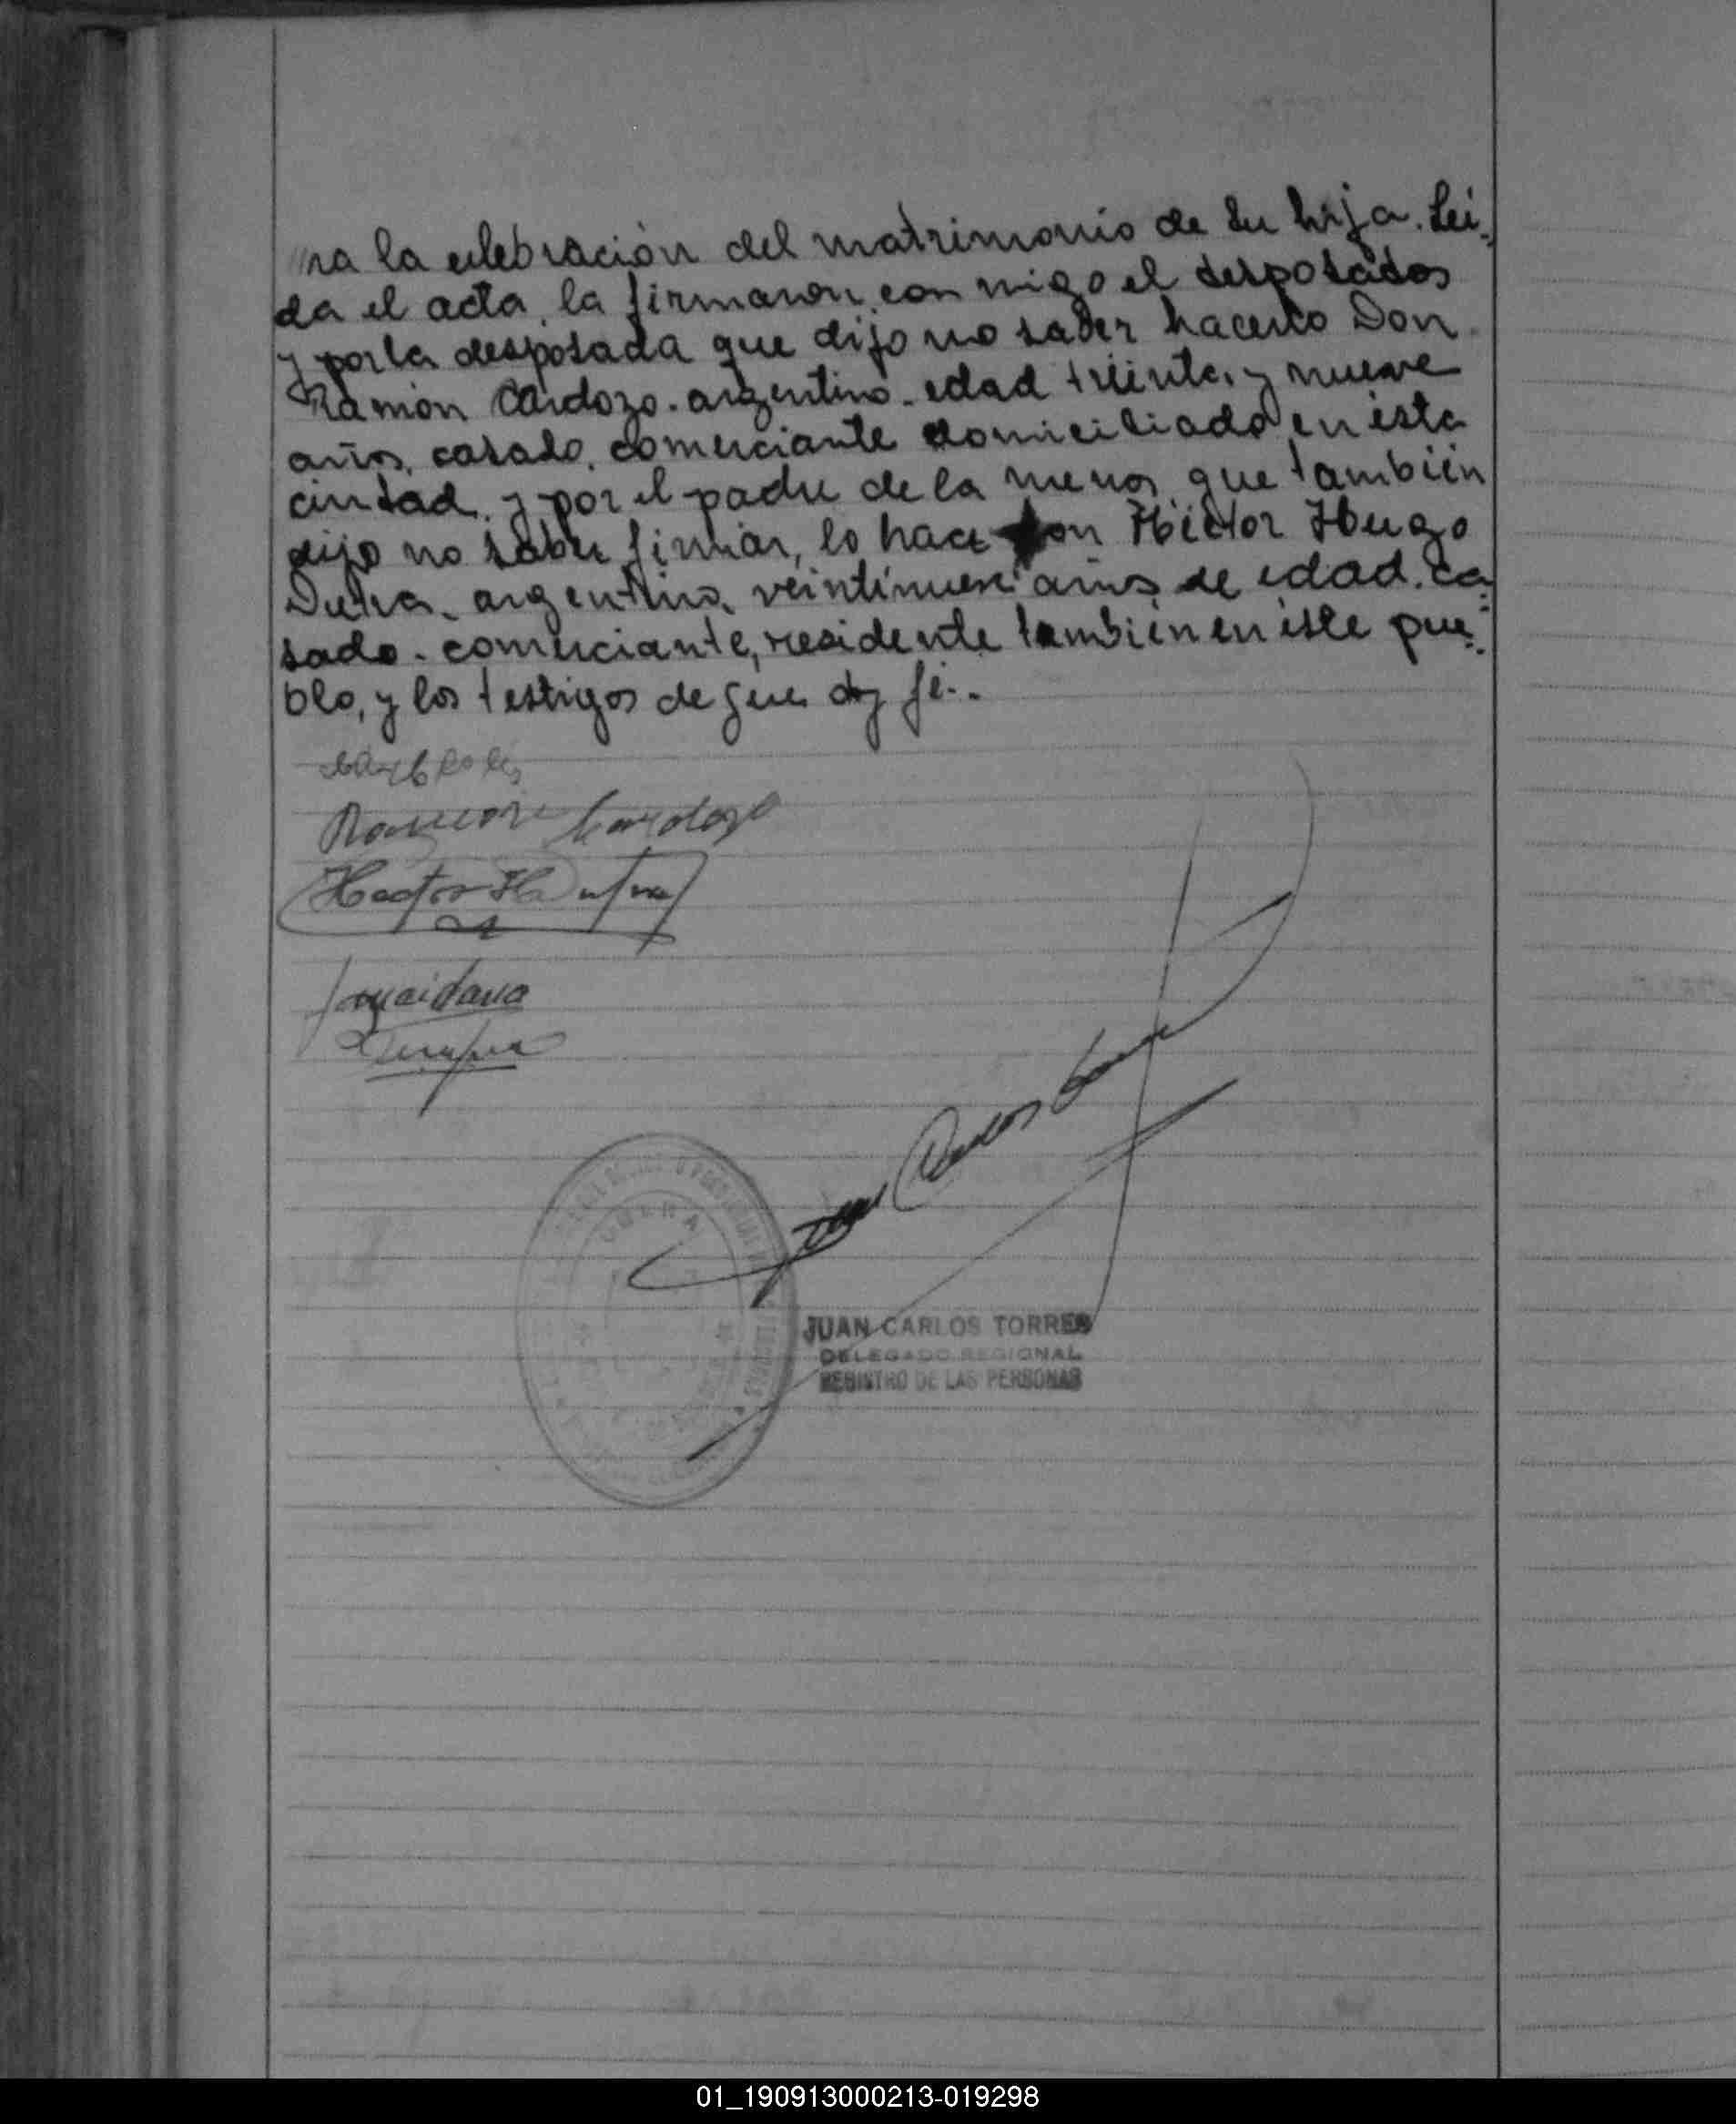 ra la celebración del matrimonio de su hija. Leí-
da el acta, la firmaron con migo el desposados
y por la desposada que dijo no saber hacerlo Don
Ramón Cardozo. argentino. edad treinta y nueve
años, casado, comerciante domiciliado en ésta
ciudad, y por el padre de la menor que también
dijo no saber firmar, lo hace Don Héctor Hugo
Dutra, argentino, veintinueve años de edad, ca-
sado. comerciante, residente también en éste pue-
blo, y los testigos de que doy fé..
Ramon Cardozo
Hector H Dutra
Juan Carlos Torres
OBERA
JUAN CARLOS TORRES
DELEGADO REGIONAL
REGISTRO DE LAS PERSONAS
01_190913000213-019298